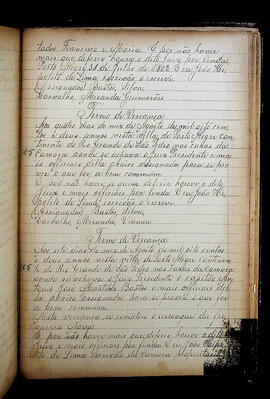 tados Francisco e Maria. E por não haver
mais que deferir houve o dito Juiz por finda
Porto Alegre 31 de Julho de 1802. Eu João Hi-
polito de Lima, escrivão o escrevi
(Assignados) Bastos, Silva,
Carvalho, Miranda, Guimarães
Termo de Vereança
Aos quatro dias do mez de Agosto de mil oito cen-
tos e dous annos nesta villa de Porto Alegre con-
tinente do Rio Grande de São Pedro nas cazas da
camara aonde se achava o Juiz Presidente e ma-
is officiais pelas abaixo assignados para se pro-
ver o que for a bem commum
E por não haver a quem deferir houve o dito
Juiz e mais officiais por finda Eu João Hi-
polito de Lima, escrivão o escrevi
(Assignados) Bastos, Silva,
Carvalho, Miranda, Vianna
Termo de Vereança
Aos sete dias do mez de Agosto de mil oito centos
e dous annos nesta villa de Porto Alegre continen-
te do Rio Grande de São Pedro nas cazas da camara
aonde se achava o Juiz Presidente o capitão An-
tonio José Martins Bastos e mais officiais del-
la abaixo assignados para se prover o que for
a bem commum
Nesta vereança se rematou o
E por não haver mais que deferir houve o dito
Juiz e mais officiais por finda Eu João Hipo-
lito de Lima escrivão da camara